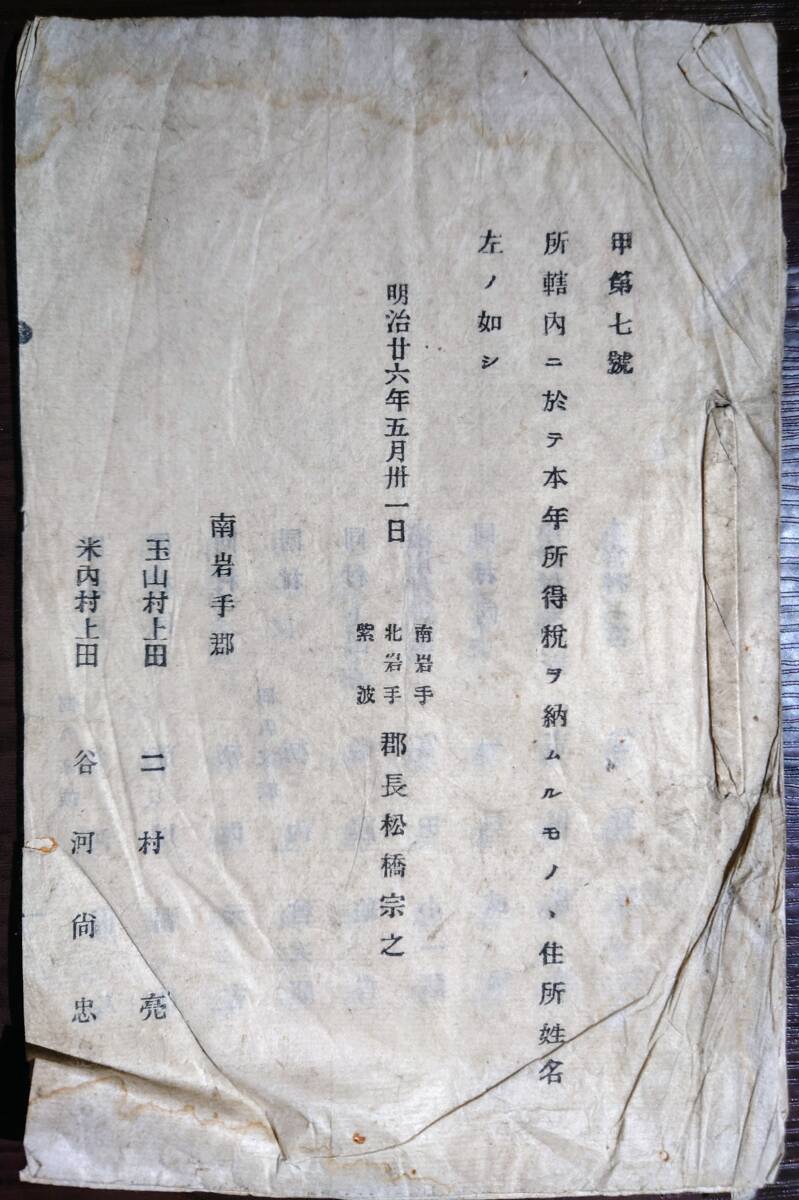 甲第七號
所轄內ニ於テ本年所得稅ヲ納ムルモノヽ住所姓名
左ノ如シ
明治廿六年五月卅一日
南岩手
北岩手
紫波
郡長松橋宗之
南岩手郡
玉山村上田 二村 亮
米內村上田 谷河尙忠